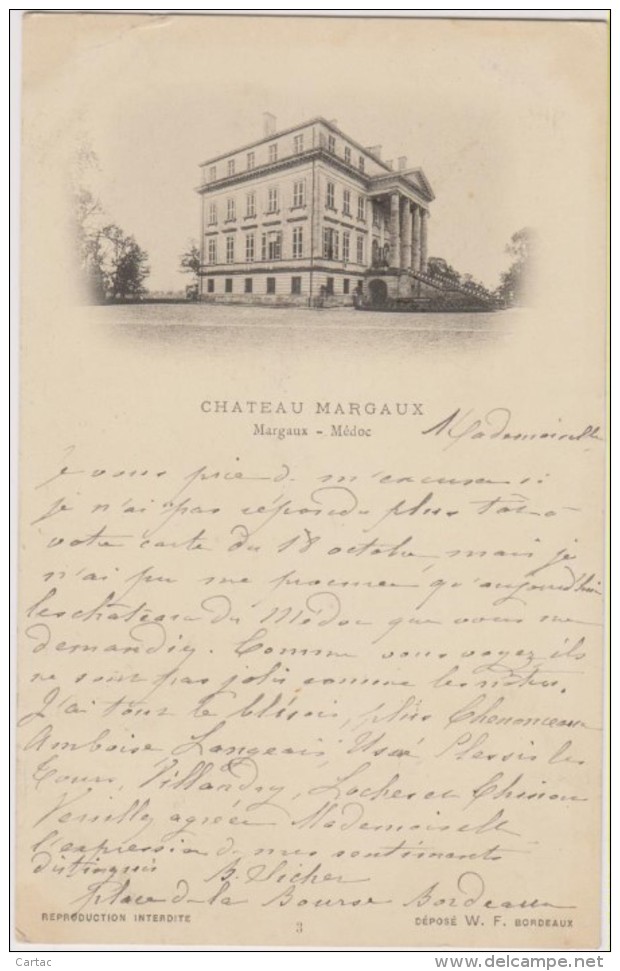 CHATEAU MARGAUX
Margaux - Médoc
Mademoiselle
Je vous prie d m'excuser si
je n'ai pas répondu plus tôt à
votre carte du 18 octobre, mais je
n'ai pu me procurer qu'aujourd'hui
les château du Médoc que vous me
demandiez. Comme vous voyez ils
ne sont pas jolis comme les nôtres.
J'ai tout le blésois, plus Chenonceaux
Amboise, Langeais, Ussé, Plessis les
Tours, Villandry, Loches et Chinon
Veuillez agréer Mademoiselle
l'expression d mes sentiments
distingués
place de la Bourse Bordeaux
REPRODUCTION INTERDITE
3
DÉPOSÉ W. F. BORDEAUX
Cartac
www.delcampe.net